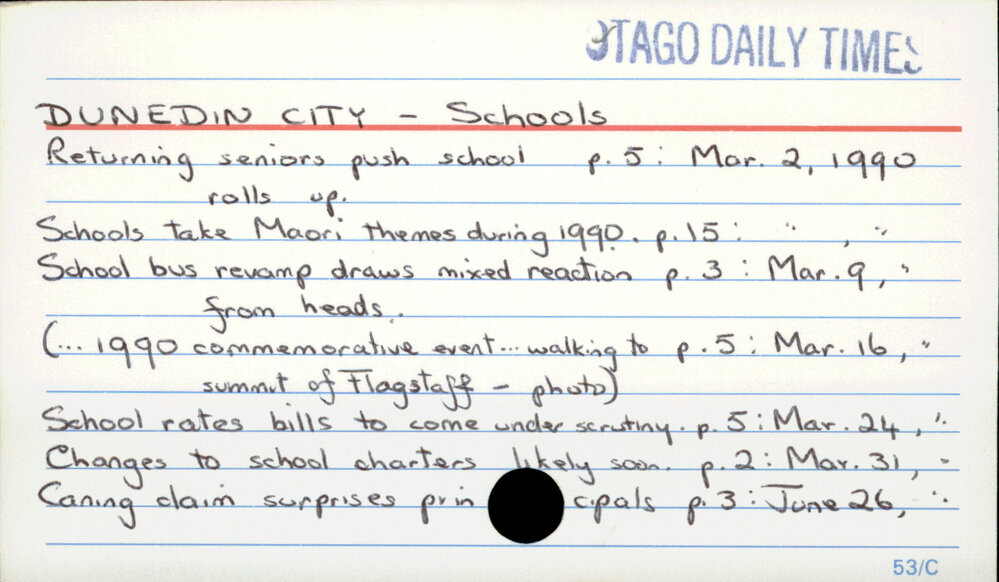 OTAGO DAILY TIMES
DUNEDIN CITY - Schools
Returning seniors push school p. 5: Mar. 2, 1990
rolls up.
Schools take Maori themes during 1990. p. 15: " , "
School bus revamp draws mixed reaction p. 3: Mar. 9, "
from heads.
(... 1990 commemorative event... walking to p. 5: Mar. 16, "
summit of Flagstaff - photo)
School rates bills to come under scrutiny. p. 5: Mar. 24, "
Changes to school charters likely soon. p. 2: Mar. 31, "
Caning claim surprises principals p. 3: June 26, "
53/C